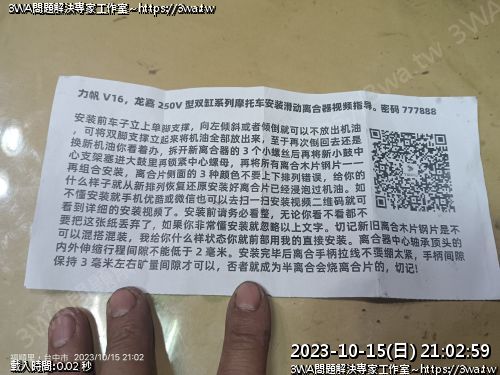 3WA問題解決專家工作室~https://3wa.tw
力帆 V16，龙嘉 250V 型双缸系列摩托车安装滑动离合器视频指导。密码 777888
安装前车子立上单脚支撑，向左倾斜或者倾倒就可以不放出机油
，可将双脚支撑立起来将机油全部放出来，至于再次倒回去还是
换新机油你看着办，拆开新离合器的 3 个小螺丝后再将新小鼓中
心支架塞进大鼓里再锁紧中心螺母，再将所有离合木片钢片一一
再组合安装，离合片侧面的 3 种颜色不要上下排列错误，给你的
什么样子就从新排列恢复还原安装好离合片已经浸泡过机油。如
不懂安装就手机优酷或微信也可以去扫一扫安装视频二维码就可
看到详细的安装视频了。安装前请务必看整，无论你看不看都不
要把这张纸丢弃了，如果你非常懂安装就忽略以上文字。切记新旧离合木片钢片是不
可以混搭混装，我给你什么样状态你就前部用我的直接安装。离合器中心轴承顶头的
内外伸缩行程间隙不能低于 2 毫米。安装完毕后离合手柄拉线不要绷太紧，手柄间隙
保持 3 毫米左右旷量间隙才可以，否者就成为半离合会烧离合片的，切记!
福順里，台中市 2023/10/15 21:02
載入時間:0.02 秒
2023-10-15(日) 21:02:59
3WA問題解決專家工作室~https://3wa.tw